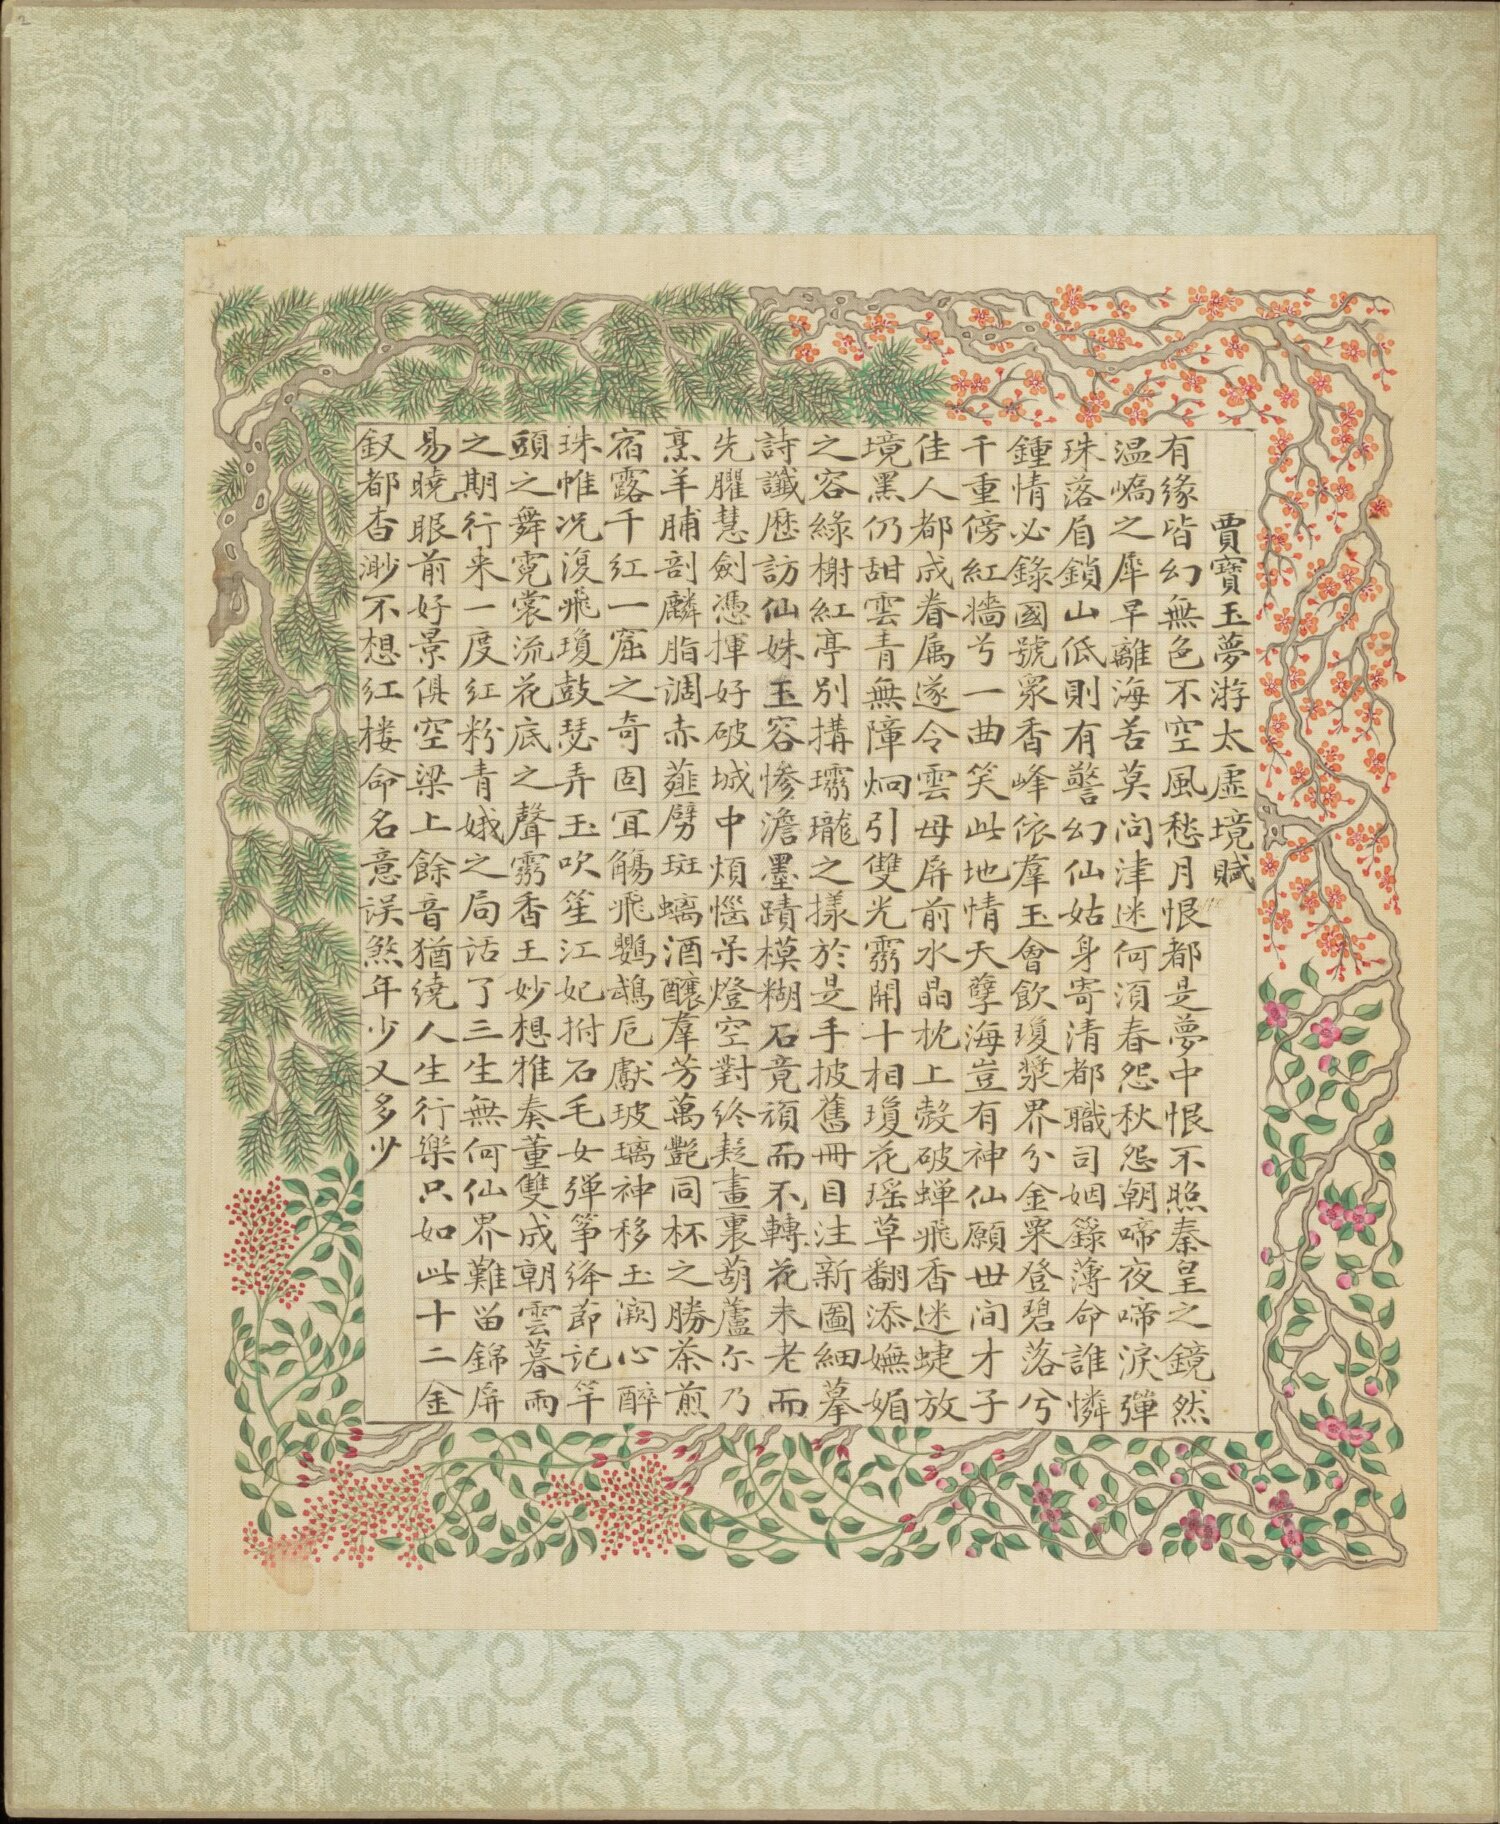 賈寶玉夢游太虛境賦
有緣皆幻無色不空風愁月恨都是夢中恨不照秦皇之鏡然
温嶠之犀早離海苦莫問津迷何須春怨秋怨朝啼夜啼淚彈
珠落眉鎖山低則有警幻仙姑身寄清都職司姻籙薄命誰憐
鍾情必錄國號衆香峰依羣玉會飲瓊漿界分金粟登碧落兮
千重傍紅牆兮一曲笑此地情天孽海豈有神仙願世间才子
佳人都成眷属遂令雲母屏前水晶枕上殼破蝉飛香迷蜨放
境黑仍甜雲青無障炯引雙光竆開十相瓊花瑶草翻添嫵媚
之容綠榭紅亭別搆瓏之樣於是手披舊冊目注新圖細摹
詩讖歷訪仙姝玉容惨澹墨蹟模糊石竟頑而不轉花未老而
先臞慧劍憑揮好破城中煩惱呆燈空對終疑畫裏葫蘆尓乃
烹羊脯剖麟脂凋赤薤劈斑螭酒釀羣芳萬艷同杯之勝茶煎
宿露千紅一窟之奇固宜觴飛鸚鵡卮獻玻璃神移玉闕心醉
珠帷况復飛瓊鼓瑟弄玉吹笙江妃拊石毛女彈筝絳節記竿
頭之舞霓裳流花底之聲竆香王妙想雅奏董雙成朝雲暮雨
之期行来一度紅粉青娥之局话了三生無何仙界難留錦屏
易曉眼前好景俱空梁上餘音猶繞人生行樂只如此十二金
釵都杳渺不想红楼命名意误煞年少又多少